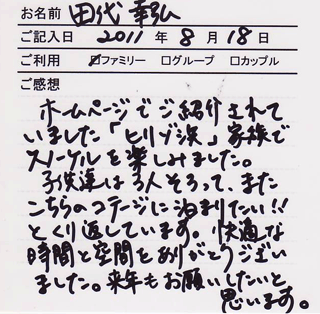 お名前 田代 幸弘
ご記入日 2011 年 8 月 18 日
ご利用 ☑ファミリー □グループ □カップル
ご感想
ホームページでご紹介されて
いました「ヒリゾ浜」家族で
スノーケルを楽しみました。
子供達は3人そろって、また
こちらのコテージに泊まりたい!!
とくり返しています。快適な
時間と空間をありがとうござい
ました。来年もお願いしたいと
思います。